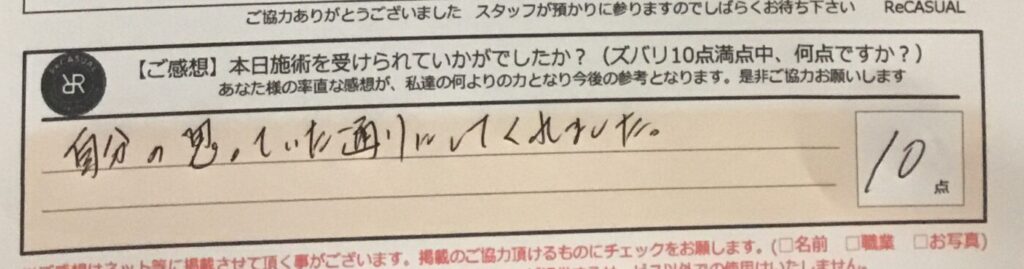 ご協力ありがとうございました スタッフが預かりに参りますのでしばらくお待ち下さい ReCASUAL
【ご感想】本日施術を受けられていかがでしたか？（ズバリ10点満点中、何点ですか？）
あなた様の率直な感想が、私達の何よりの力となり今後の参考となります。是非ご協力お願いします
自分の思っていた通りにしてくれました。
10点
ご感想はネット等に掲載させて頂く事がございます。掲載のご協力頂けるものにチェックをお願します。(□名前 □職業 □お写真)
以外での使用はいたしません。